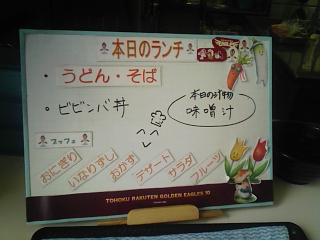 本日のランチ
・うどん・そば
・ビビンバ丼
本日の汁物
味噌汁
ブッフェ
おにぎり
いなりずし
おかず
デザート
サラダ
フルーツ
TOHOKU RAKUTEN GOLDEN EAGLES 10